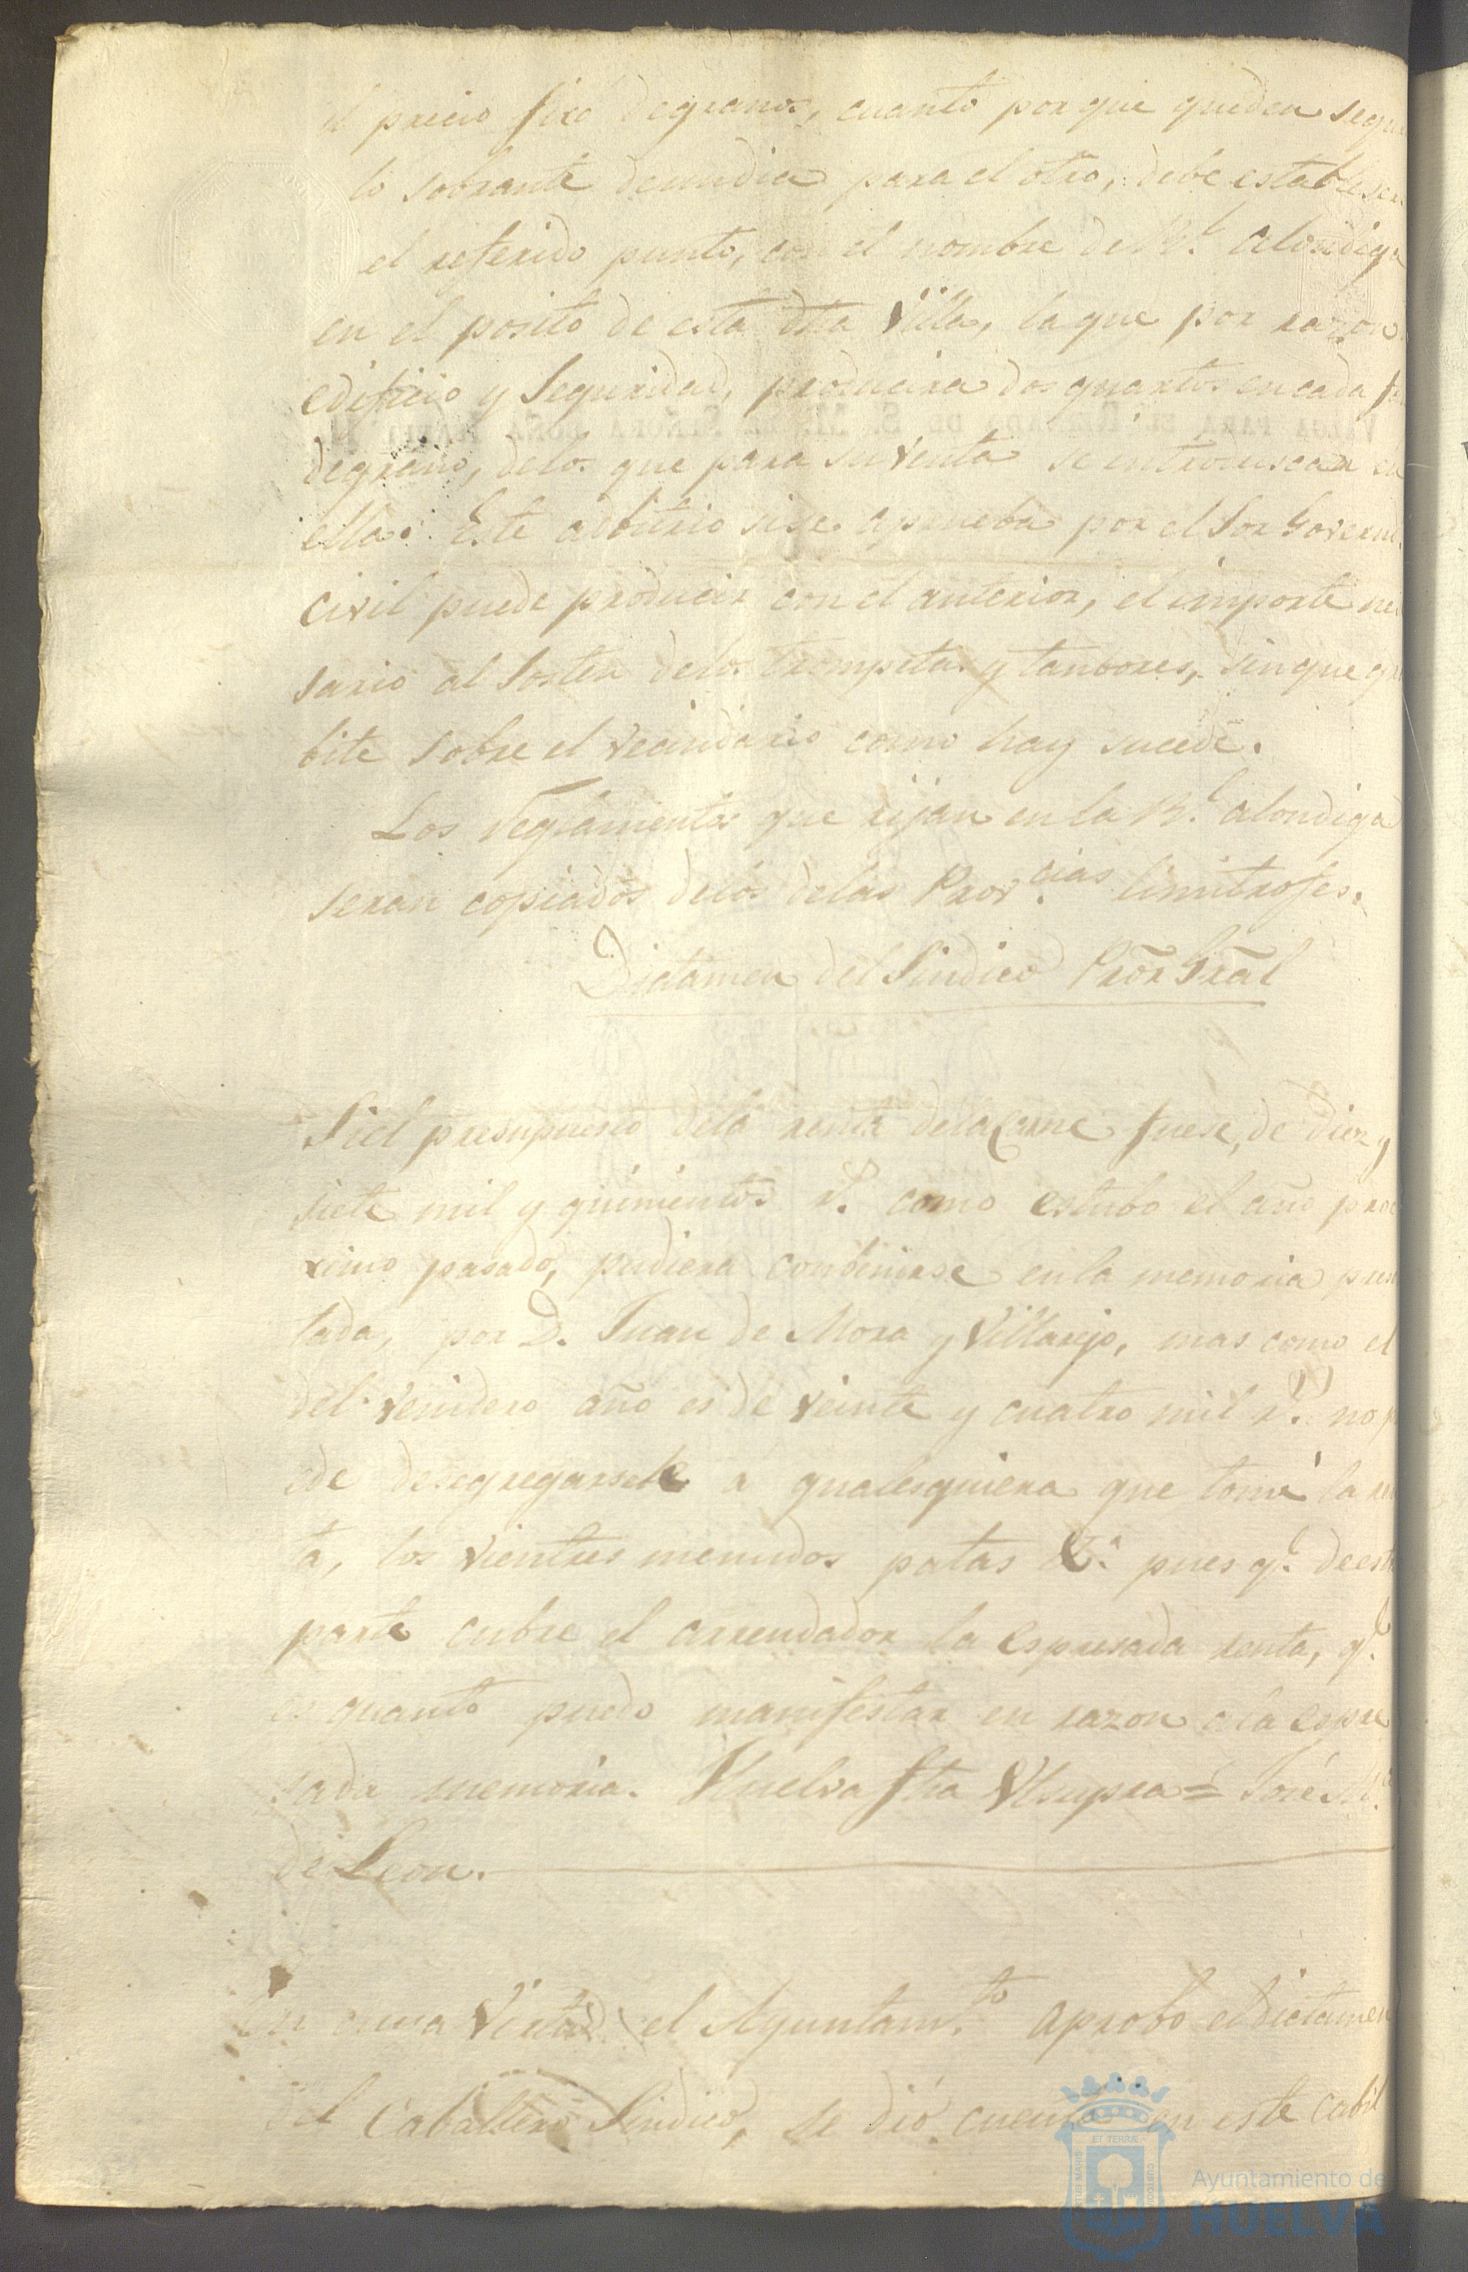 el precio fixo degranos, cuanto por que queden segu
lo sobrante deundia para el otro, debe estableser
el referido punto, con el nombre de Rl. alondiga
en el posito de esta dha Villa, la que por razon
edificio y Seguridad, producira dos quartos encada
degrano, delos que para su venta se introduscan en
ella. Este adbitrio si se aprueba por el Sor Govern
civil puede producir con el anterior, el importe nec
sario al Sosten delos trompetas y tanbores, sin que gra
bite sobre el vecindario como hay sucede.
Los reglamentos que rijan en la Rl. alondiga
seran copiados delos delas Provcias. limitrofes.
Dictamen del Sindico Prōr Grāl
Si el presupuesto dela renta dela Carne fuese, de diez y
siete mil y quinientos rs. como estubo el año pro
ximo pasado, pudiera conbenirse en la memoria presen
tada, por D. Juan de Mora y Villarejo, mas como el
del venidero año es de veinte y cuatro mil rs. no p
ede desegregarsele a qualesquiera que tome la ren
ta, los vientres menudos patas &a. pues qe. de esta
parte cubre el arrendador la espresada renta, qe.
es quanto puedo manifestar en razon a la espre
sada memoria. Huelva fha Utsupra = José Ma.
de Leon.
En cuya Vista el Ayuntamto. aprobo el dictamen
del Caballero Sindico, se dió cuenta en este cabil
VALGA PARA EL REINADO DE S. M. LA SEÑORA DOÑA
Ayuntamiento de
HUELVA